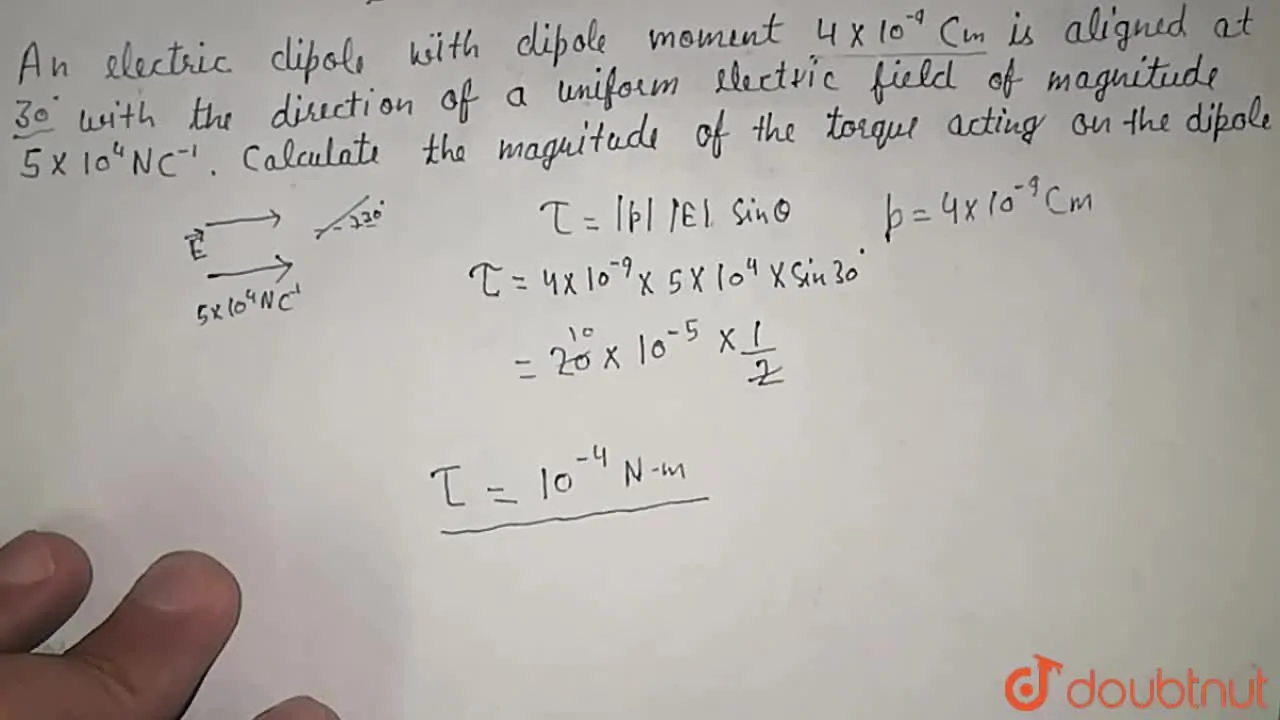 An electric dipole with dipole moment 4 × 10⁻⁹ Cm is aligned at
30° with the direction of a uniform electric field of magnitude
5 × 10⁴ NC⁻¹. Calculate the magnitude of the torque acting on the dipole
τ = |p| |E|. Sinθ
p = 4 × 10⁻⁹ Cm
E⃗
30°
5 × 10⁴ NC⁻¹
τ = 4 × 10⁻⁹ × 5 × 10⁴ × Sin 30°
10
= 20 × 10⁻⁵ × 1/2
τ = 10⁻⁴ N-m
doubtnut